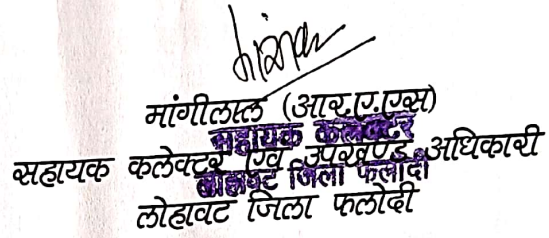 मांगीलाल (आर.ए.एस)
सहायक कलेक्टर
सहायक कलेक्टर एवं उपखण्ड अधिकारी
लोहावट जिला फलोदी
लोहावट जिला फलोदी